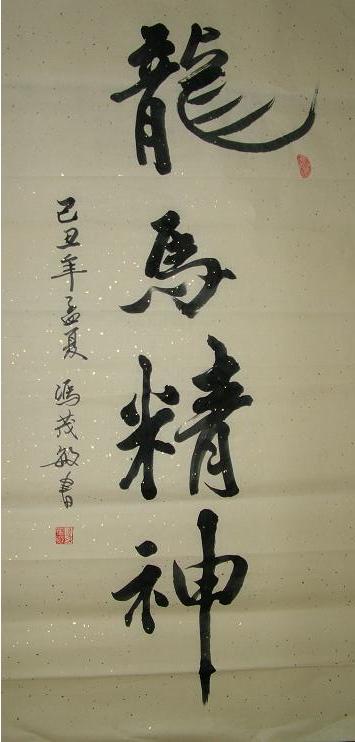 龍馬精神
己丑年孟夏 馮茂敏書